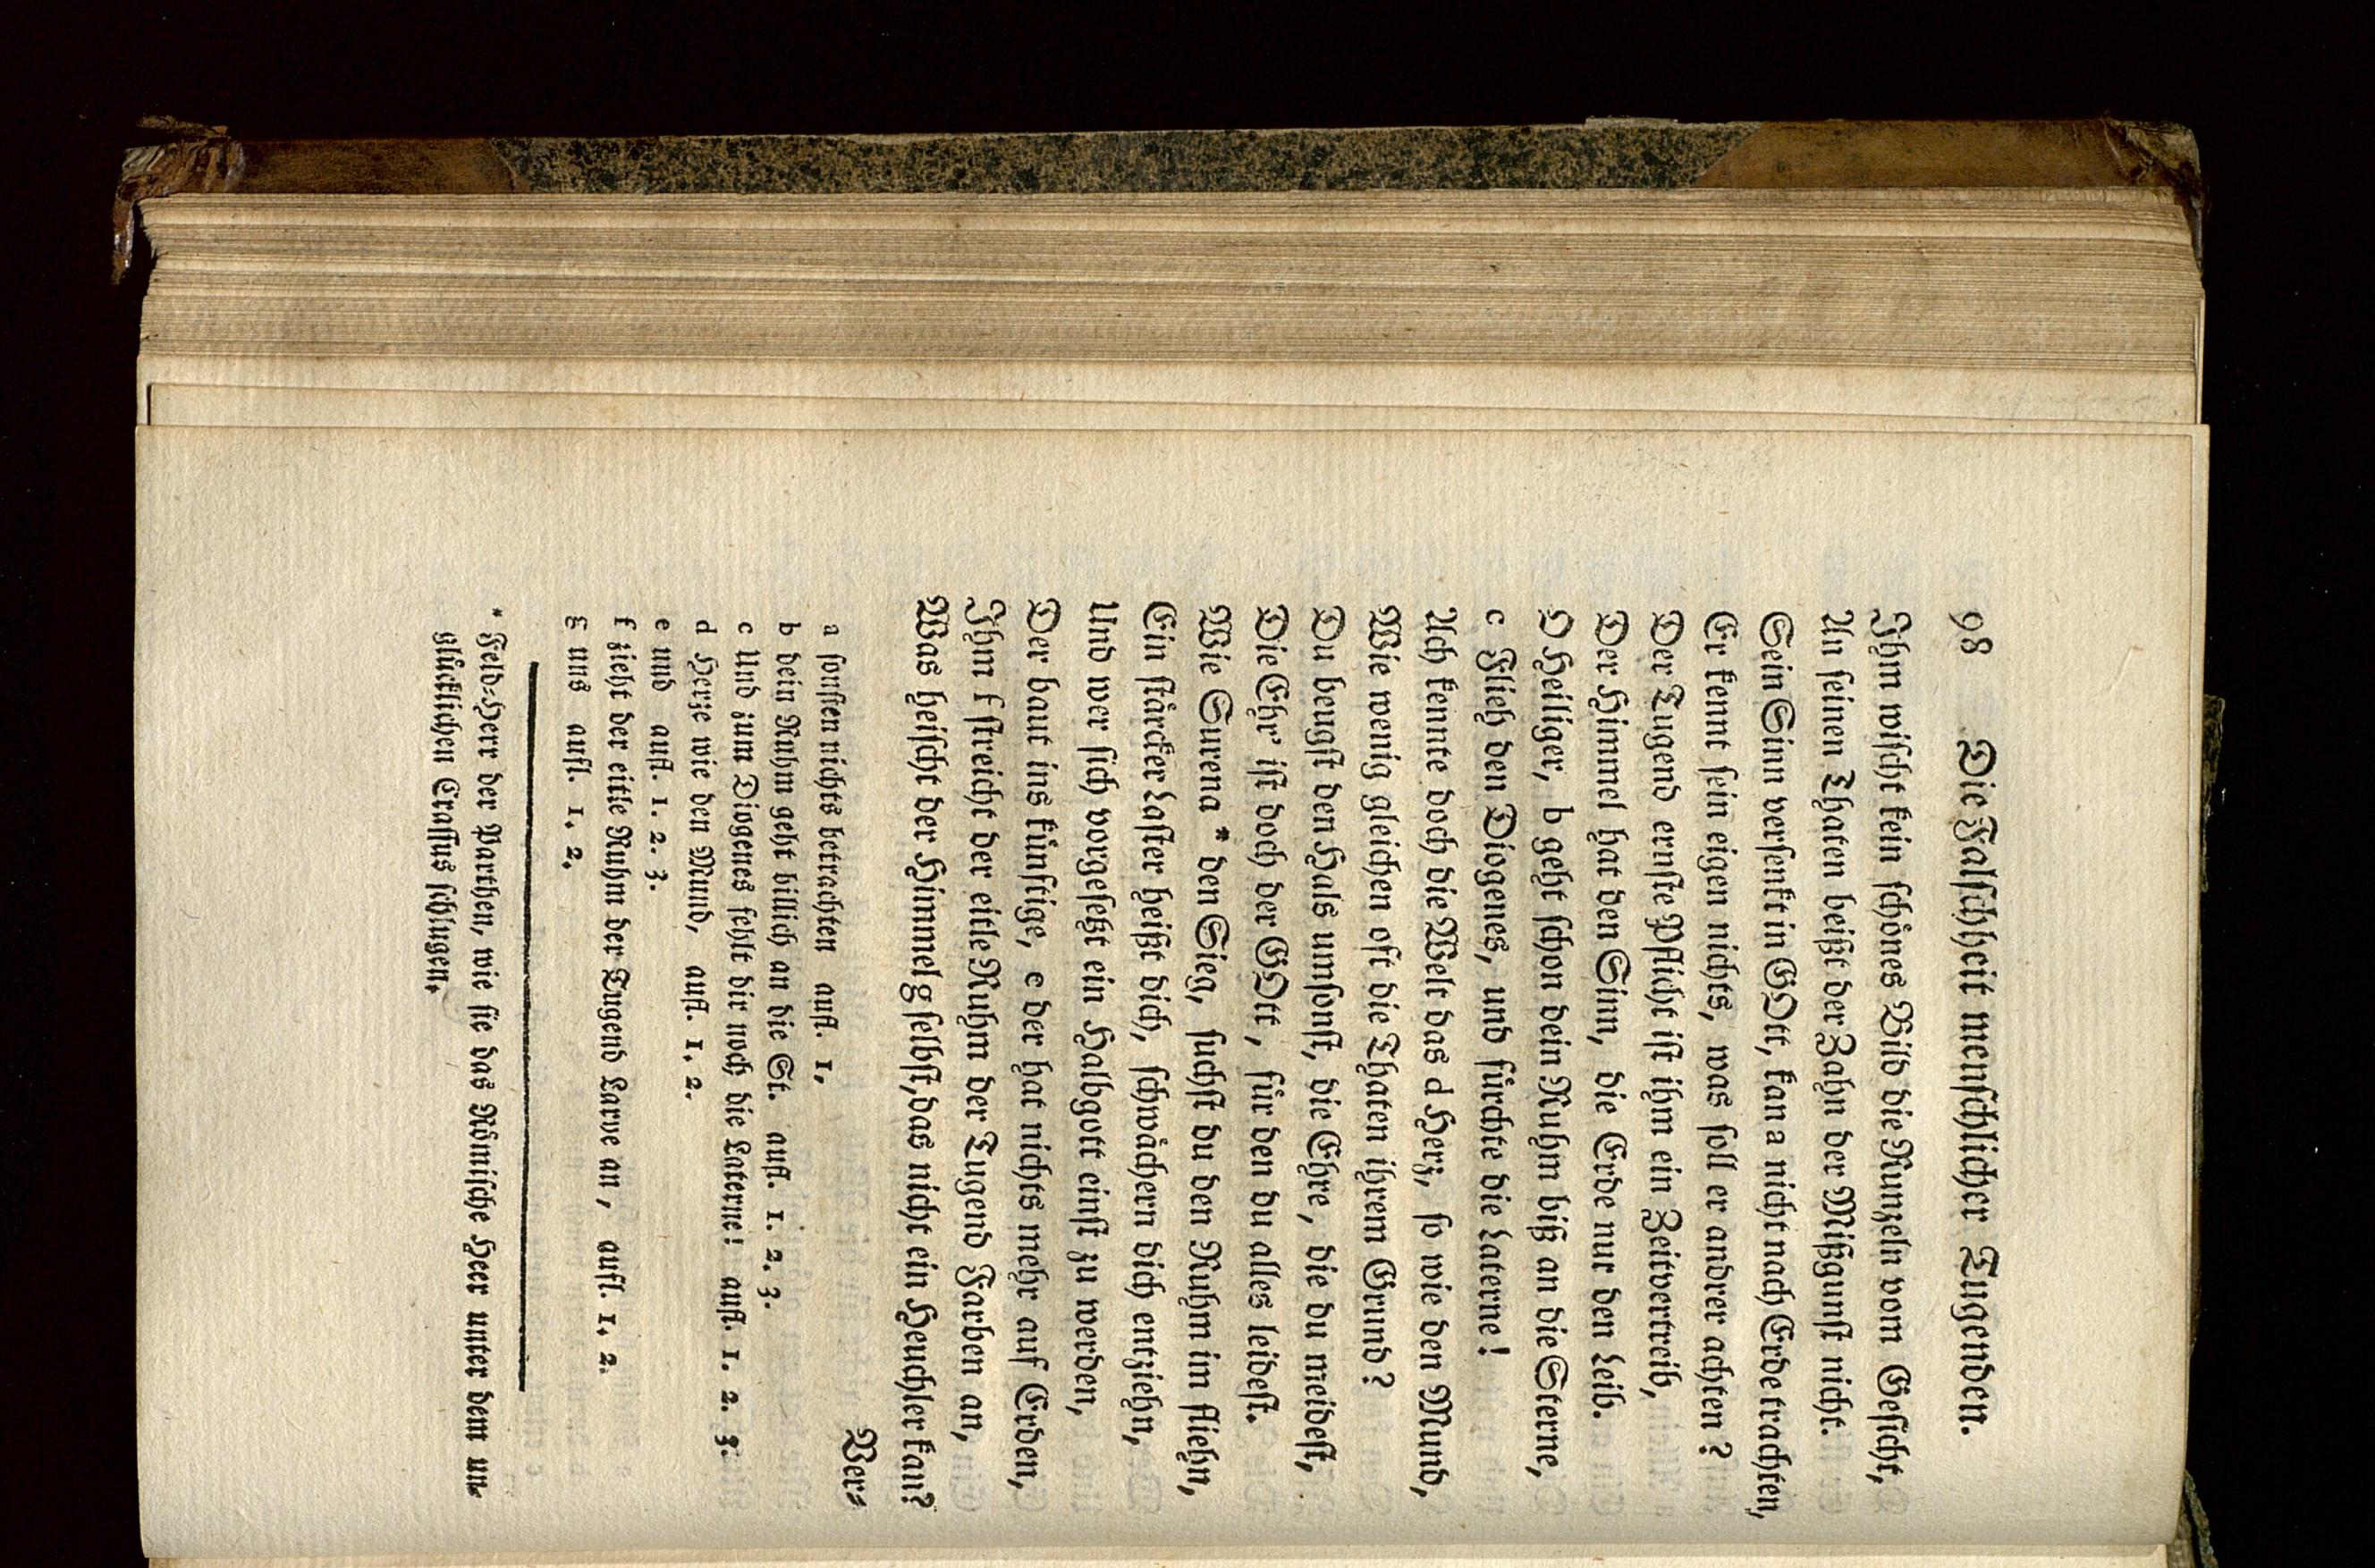 98 Die Falſchheit menſchlicher Tugenden.
Ihm wiſcht kein ſchönes Bild die Runzeln vom Geſicht,
An ſeinen Thaten beißt der Zahn der Mißgunſt nicht.
Sein Sinn verſenkt in GOtt, kan a nicht nach Erde trachten,
Er kennt ſein eigen nichts, was ſoll er andrer achten?
Der Tugend ernſte Pflicht iſt ihm ein Zeitvertreib,
Der Himmel hat den Sinn, die Erde nur den Leib.
O Heiliger, b geht ſchon dein Ruhm biß an die Sterne,
c Flieh den Diogenes, und fürchte die Laterne!
Ach kennte doch die Welt das d Herz, ſo wie den Mund,
Wie wenig gleichen oft die Thaten ihrem Grund?
Du beugſt den Hals umſonſt, die Ehre, die du meideſt,
Die Ehr' iſt doch der GOtt, für den du alles leideſt.
Wie Surena * den Sieg, ſuchſt du den Ruhm im fliehn,
Ein ſtärcker Laſter heißt dich, ſchwächern dich entziehn,
Und wer ſich vorgeſetzt ein Halbgott einſt zu werden,
Der baut ins künftige, e der hat nichts mehr auf Erden,
Ihm f ſtreicht der eitle Ruhm der Tugend Farben an,
Was heiſcht der Himmel g ſelbſt, das nicht ein Heuchler kan?
Ver⸗
a ſonſten nichts betrachten aufl. 1,
b dein Ruhm geht billich an die St. aufl. 1. 2. 3.
c Und zum Diogenes fehlt dir noch die Laterne! aufl. 1. 2. 3.
d Herze wie den Mund, aufl. 1. 2.
e und aufl. 1. 2. 3.
f zieht der eitle Ruhm der Tugend Larve an, aufl. 1. 2.
g uns aufl. 1. 2.
* Feld⸗Herr der Parthen, wie ſie das Römiſche Heer unter dem un⸗
glücklichen Craſſus ſchlugen.